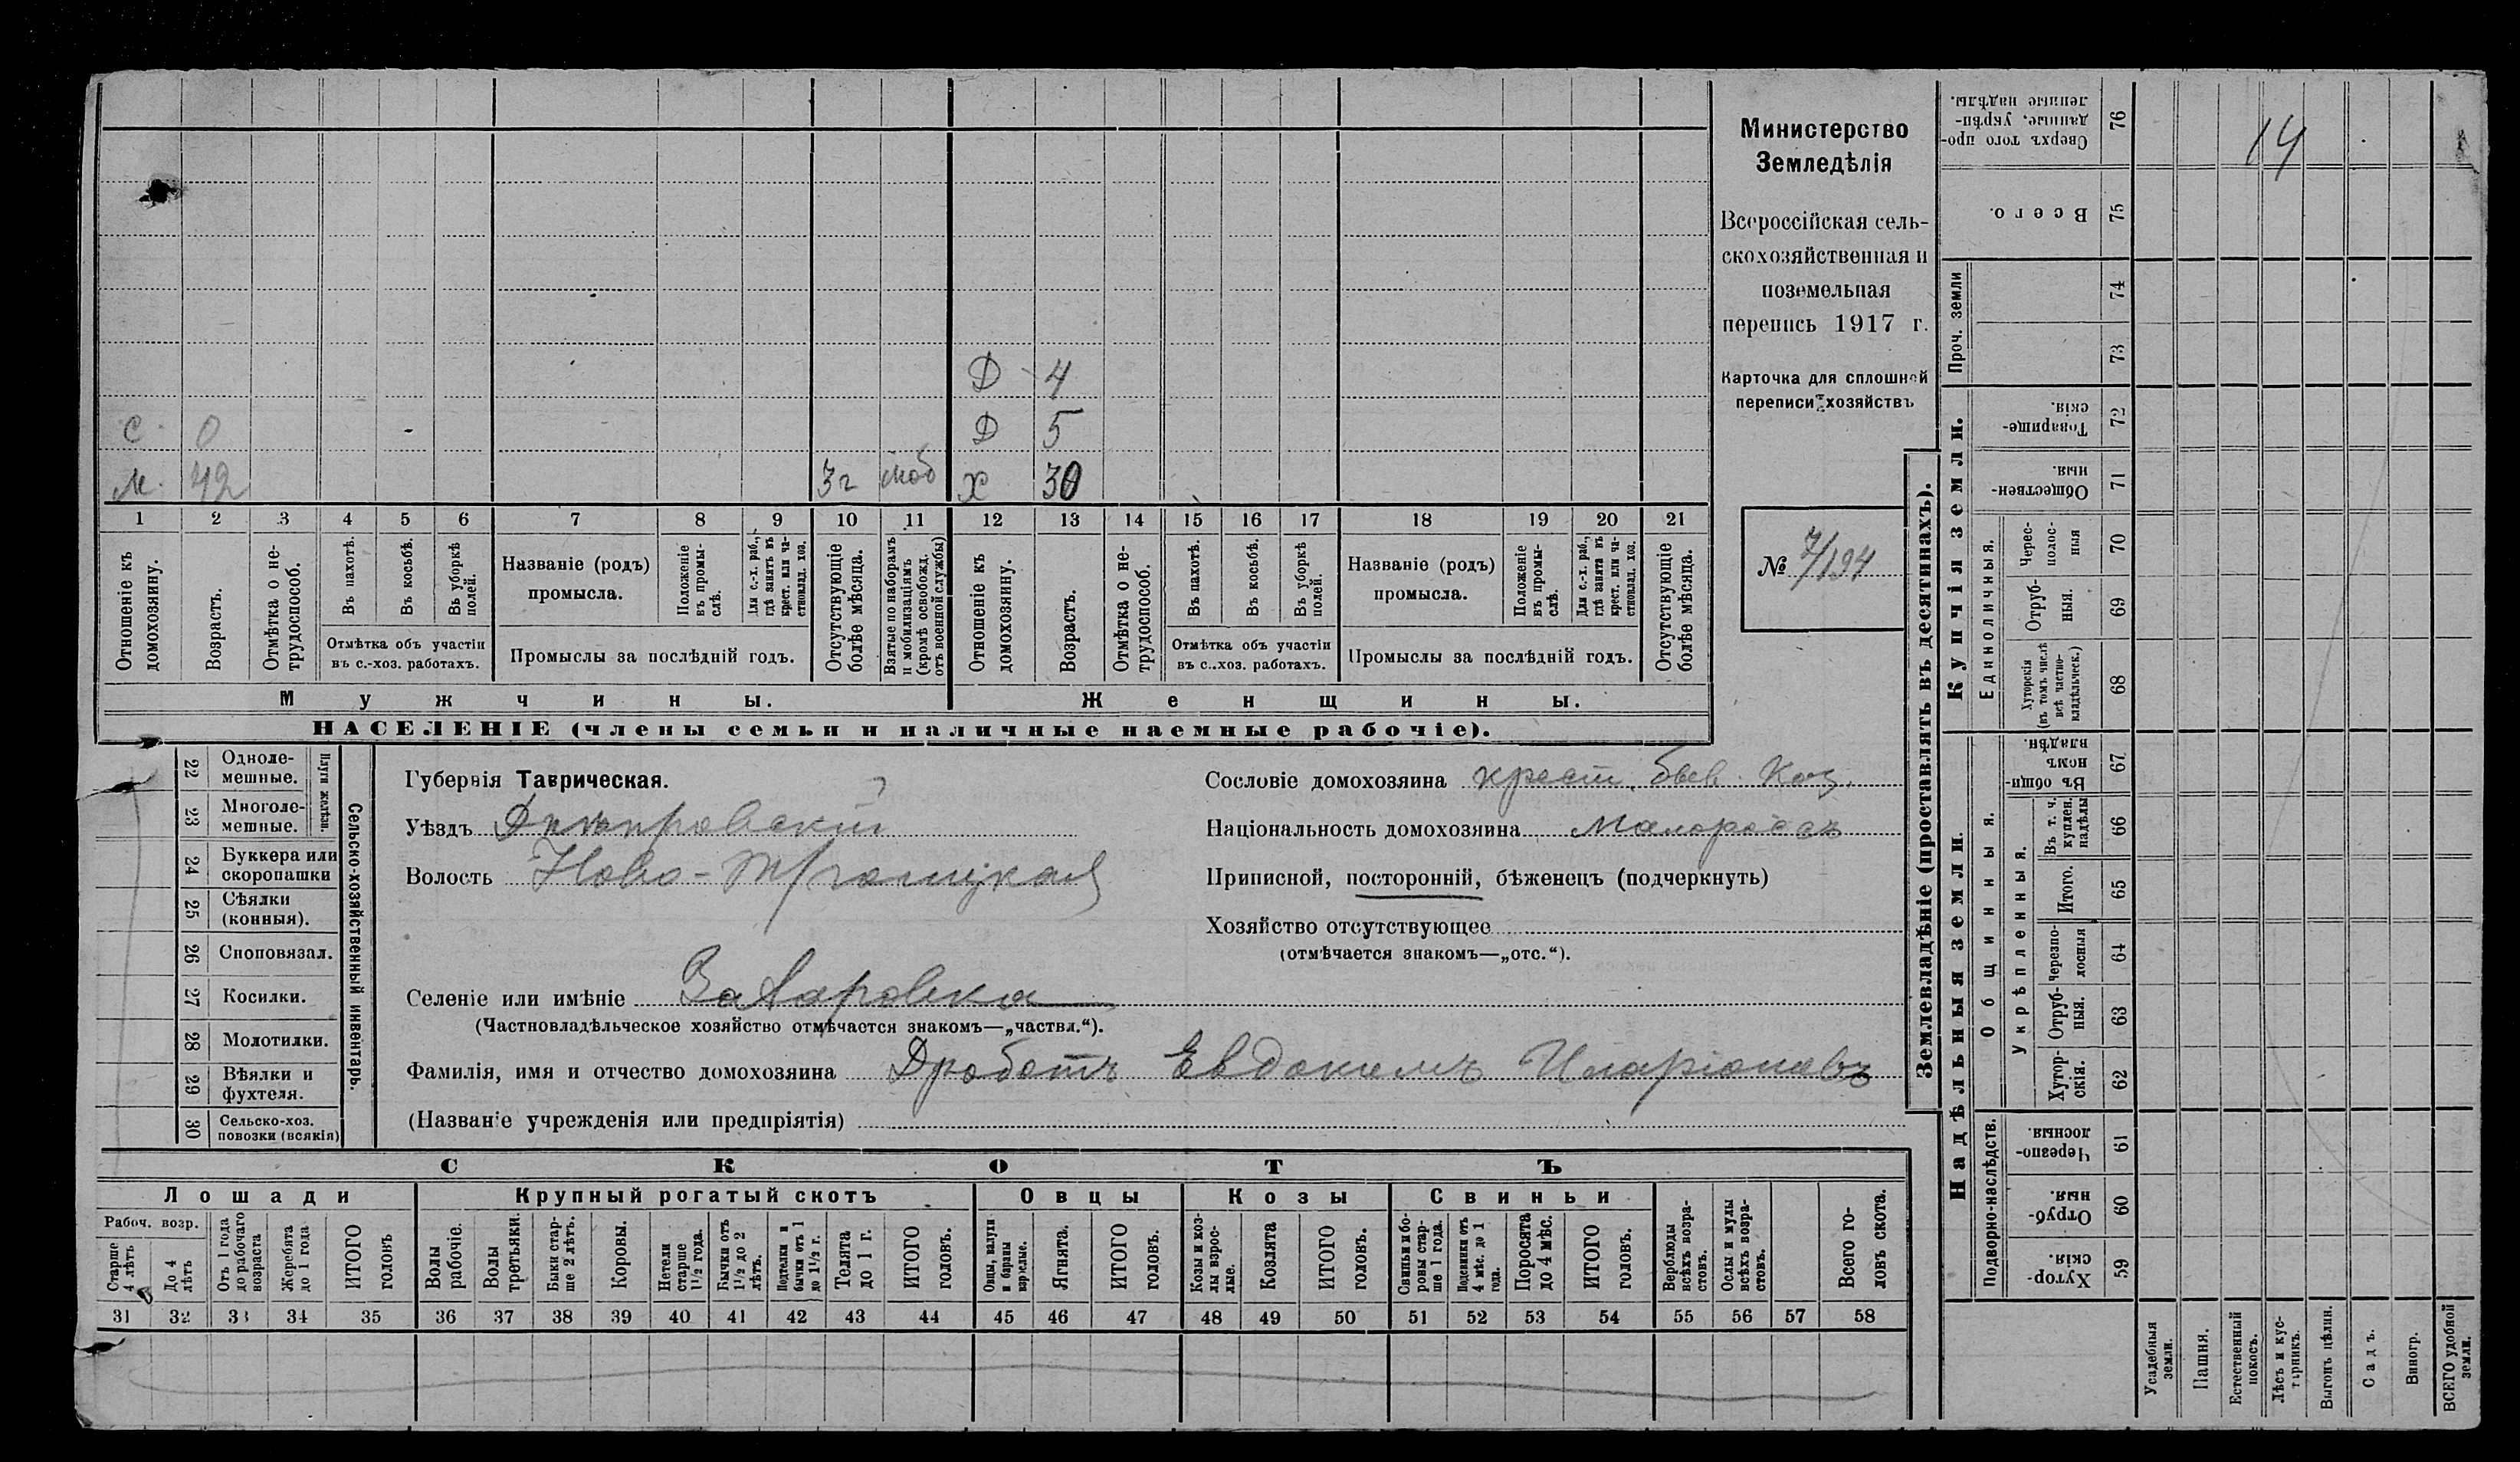 Министерство
Земледѣлія
Всероссійская сель-
скохозяйственная и
поземельная
перепись 1917 г.
Карточка для сплошной
переписи хозяйствъ
№ 7/194
14
Д 4
С. 0 Д 5
М. 42 3 г моб Х 30
1 2 3 4 5 6 7 8 9 10 11 12 13 14 15 16 17 18 19 20 21
Отношеніе къ домохозяину.
Возрастъ.
Отмѣтка о не-трудоспособ.
Въ пахотѣ.
Въ косьбѣ.
Въ уборкѣ полей.
Отмѣтка объ участіи въ с.-хоз. работахъ.
Названіе (родъ) промысла.
Положеніе въ промы-слѣ.
Для с.-х. раб., гдѣ занятъ въ крест. или ча-стновлад. хоз.
Промыслы за послѣдній годъ.
Отсутствующіе болѣе мѣсяца.
Взятые по наборамъ и мобилизаціямъ (кромѣ освобожд. отъ военной службы)
Отношеніе къ домохозяину.
Возрастъ.
Отмѣтка о не-трудоспособ.
Въ пахотѣ.
Въ косьбѣ.
Въ уборкѣ полей.
Отмѣтка объ участіи въ с.-хоз. работахъ.
Названіе (родъ) промысла.
Положеніе въ промы-слѣ.
Для с.-х. раб., гдѣ занята въ крест. или ча-стновлад. хоз.
Промыслы за послѣдній годъ.
Отсутствующіе болѣе мѣсяца.
Мужчины. Женщины.
НАСЕЛЕНІЕ (члены семьи и наличные наемные рабочіе).
Сельско-хозяйственный инвентарь.
Плуги желѣзн.
22 Одноле-мешные.
23 Многоле-мешные.
24 Буккера или скоропашки
25 Сѣялки (конныя).
26 Сноповязал.
27 Косилки.
28 Молотилки.
29 Вѣялки и фухтеля.
30 Сельско-хоз. повозки (всякія)
Губернія Таврическая.
Уѣздъ Днѣпровскій
Волость Ново-Троицкая
Селеніе или имѣніе
(Частновладѣльческое хозяйство отмѣчается знакомъ—„частвл.“).
Фамилія, имя и отчество домохозяина Дроботъ Евдокимъ Иларіоновъ
(Названіе учрежденія или предпріятія)
Сословіе домохозяина крест.
Національность домохозяина малороссъ
Приписной, посторонній, бѣженецъ (подчеркнуть)
Хозяйство отсутствующее
(отмѣчается знакомъ—„отс.“).
СКОТЪ
Лошади Крупный рогатый скотъ Овцы Козы Свиньи
Рабоч. возр.
Старше 4 лѣтъ
До 4 лѣтъ
Отъ 1 года до рабочаго возраста
Жеребята до 1 года
ИТОГО головъ
Волы рабочіе.
Волы третьяки.
Быки стар-ше 2 лѣтъ.
Коровы.
Нетели старше 1 1/2 года.
Бычки отъ 1 1/2 до 2 лѣтъ.
Подтелки и бычки отъ 1 до 1 1/2 г.
Телята до 1 г.
ИТОГО головъ.
Овцы, валухи и бараны взрослые.
Ягнята.
ИТОГО головъ.
Козы и коз-лы взрос-лые.
Козлята
ИТОГО головъ.
Свиньи и бо-ровы стар-ше 1 года.
Подсвинки отъ 4 мѣс. до 1 года.
Поросята до 4 мѣс.
ИТОГО головъ.
Верблюды всѣхъ возра-стовъ.
Ослы и мулы всѣхъ возра-стовъ.
Всего го-ловъ скота.
31 32 33 34 35 36 37 38 39 40 41 42 43 44 45 46 47 48 49 50 51 52 53 54 55 56 57 58
Землевладѣніе (проставлять въ десятинахъ).
Сверхъ того про-данные, укрѣп-ленные надѣлы. 76
Всего. 75
Проч. земли 74 73
Купчія земли.
Товарище-скія. 72
Обществен-ныя. 71
Единоличныя.
Черес-полос-ныя 70
Отруб-ныя. 69
Хуторскія (въ томъ числѣ всѣ частно-владѣльческ.) 68
Надѣльныя земли.
Общинныя.
Въ общи-номъ владѣн. 67
Укрѣпленныя.
Въ т. ч. куплен. надѣлы 66
Итого. 65
Черезпо-лосныя 64
Отруб-ныя. 63
Хутор-скія. 62
Подворно-наслѣдств.
Черезпо-лосныя. 61
Отруб-ныя. 60
Хутор-скія. 59
Усадебныя земли.
Пашня.
Естественный покосъ.
Лѣсъ и кус-тарникъ.
Выгонъ цѣлин.
Садъ.
Виногр.
ВСЕГО удобной земли.